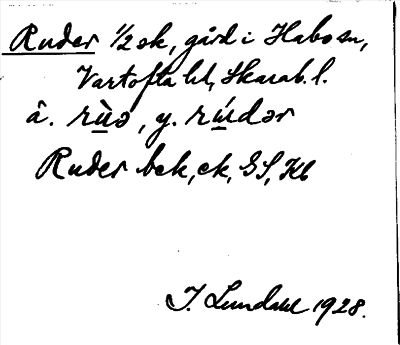 Ruder 1/2 sk, gård i Habo sn,
Vartofta hd, Skarab. l.
â. rùə, y. rúdər
Ruder bek, ek, GS, Kb
I. Lundahl 1928.